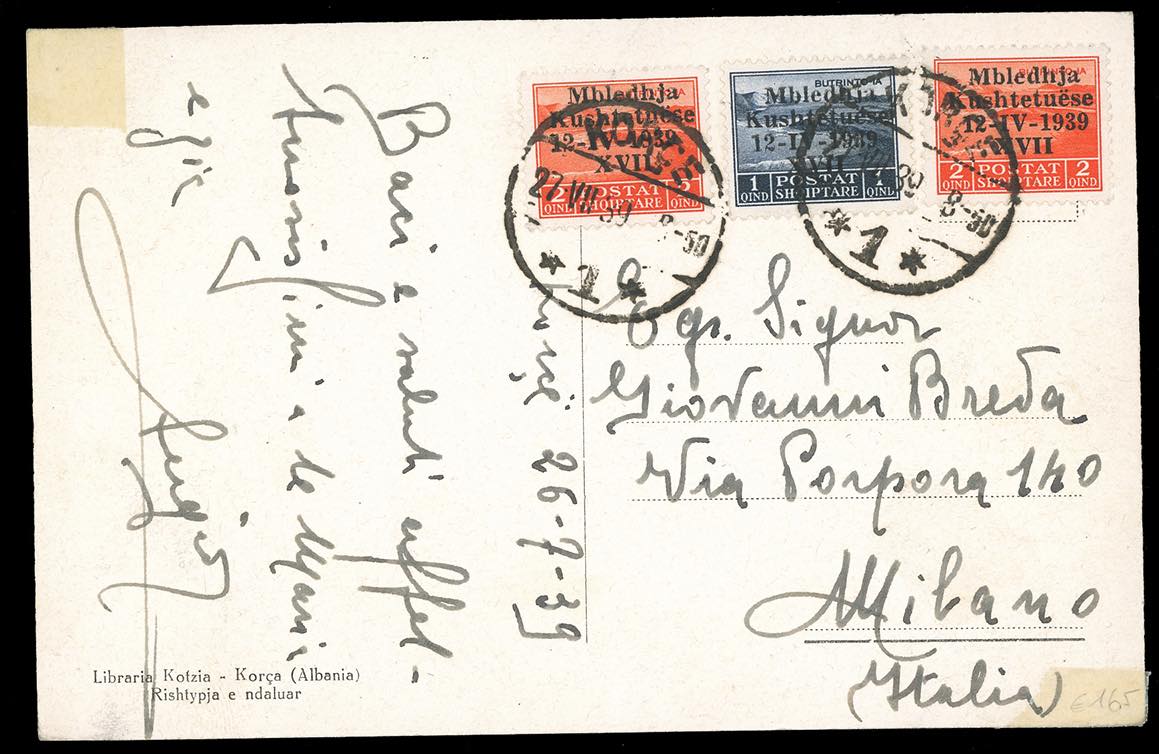 BUTRINTO-JA
Mbledhja
Kushtetuëse
12-IV-1939
XVII
2 QIND POSTAT SHQIPTARE 2 QIND
BUTRINTO-JA
Mbledhja
Kushtetuëse
12-IV-1939
XVII
1 QIND POSTAT SHQIPTARE 1 QIND
BUTRINTO-JA
Mbledhja
Kushtetuëse
12-IV-1939
XVII
2 QIND POSTAT SHQIPTARE 2 QIND
27 VII 39 8-50
* 1 *
39 8-50
* 1 *
26-7-39
Baci e saluti affet-
tuosissimi a te Mari
e
Luigi
Egr. Signor
Giovanni Breda
Via Porpora 140
Milano
(Italia)
Libraria Kotzia - Korça (Albania)
Rishtypja e ndaluar
€165